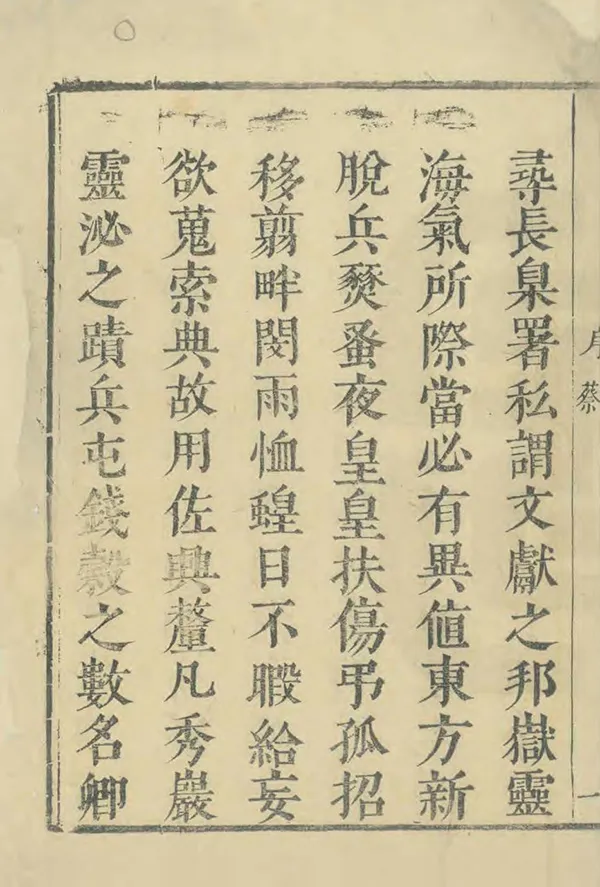 尋長臬署私謂文獻之邦嶽靈
海氣所際當必有異値東方新
脫兵燹蚤夜皇皇扶傷弔孤招
移翦畔閔雨恤蝗日不暇給妄
欲蒐索典故用佐興釐凡秀巖
靈泌之蹟兵屯錢穀之數名卿
序 蔡
一